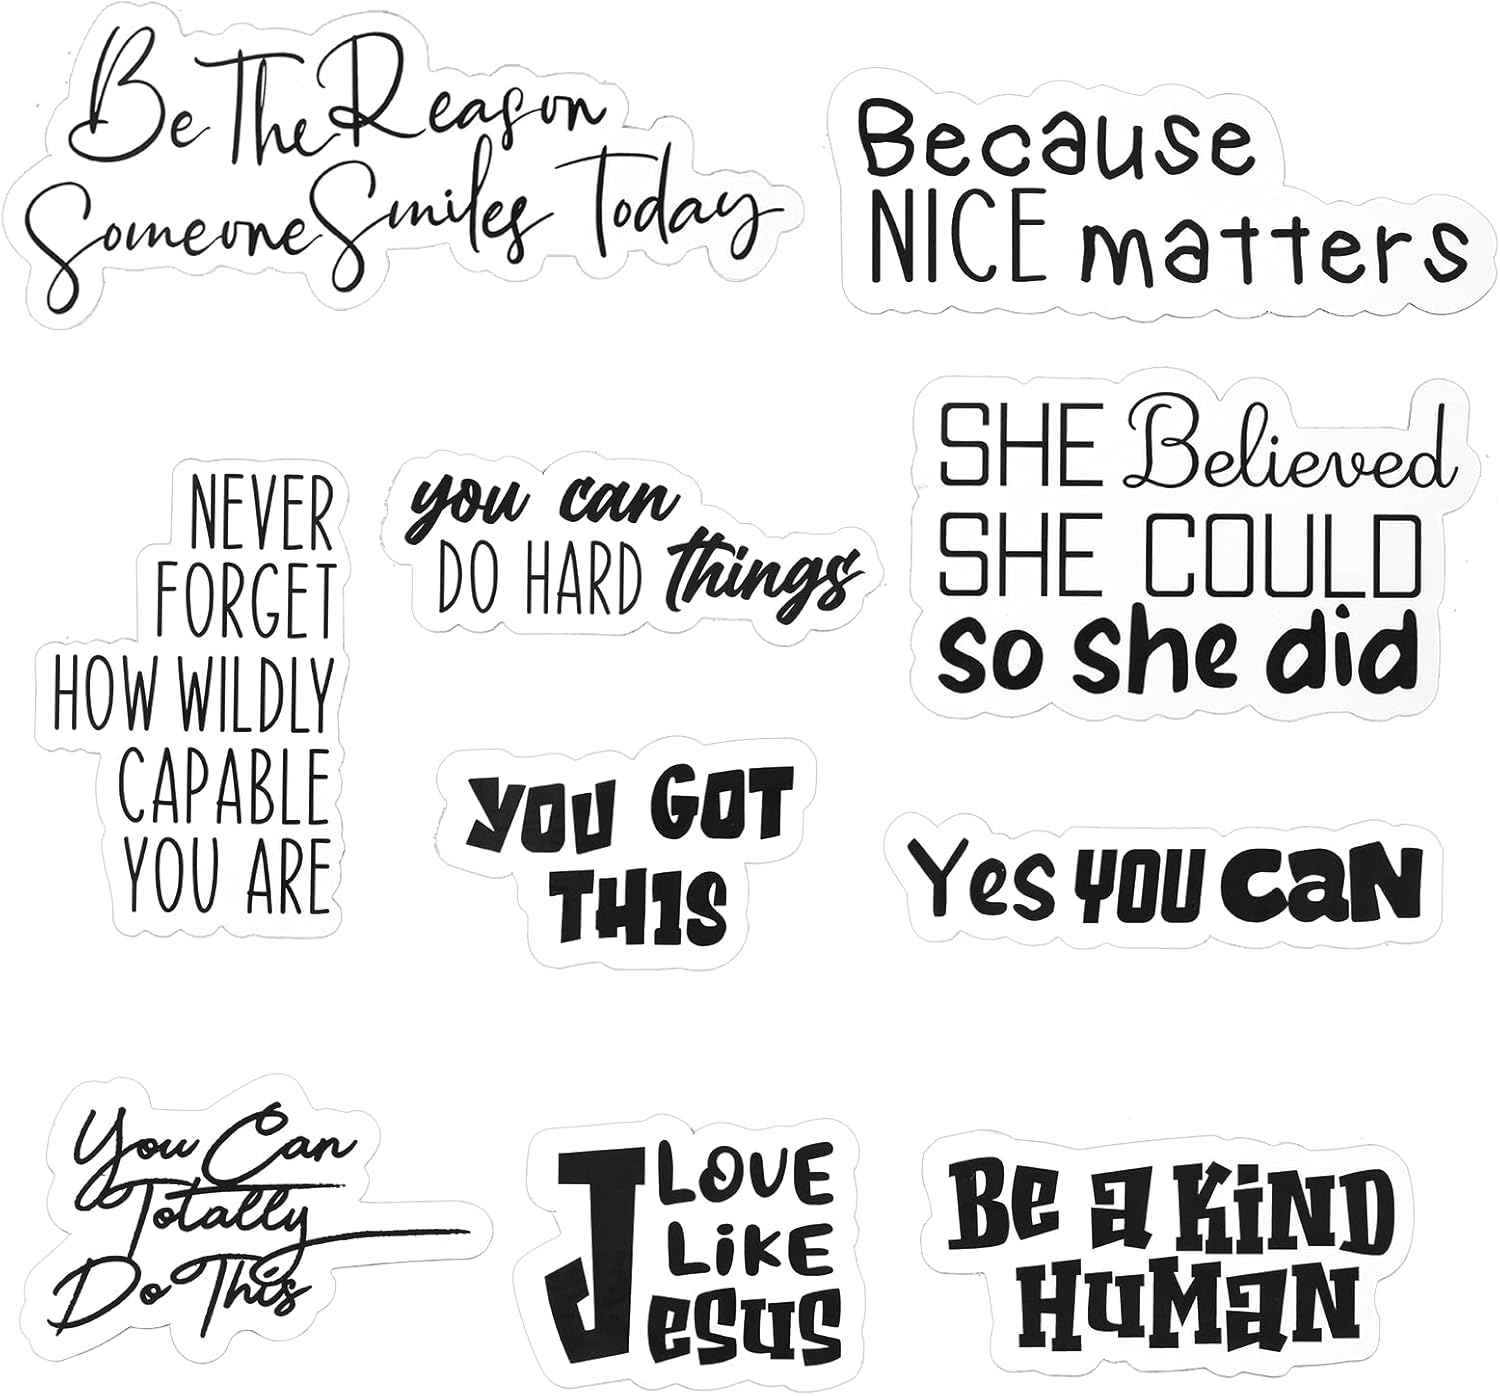 Be The Reason
Someone Smiles Today
Because
NICE matters
SHE Believed
SHE COULD
so she did
NEVER
FORGET
HOW WILDLY
CAPABLE
YOU ARE
you can
DO HARD things
YOU GOT
THIS
Yes YOU CaN
You Can
Totally
Do This
J LOVE
LiKE
JesuS
Be a KiND
HuMaN